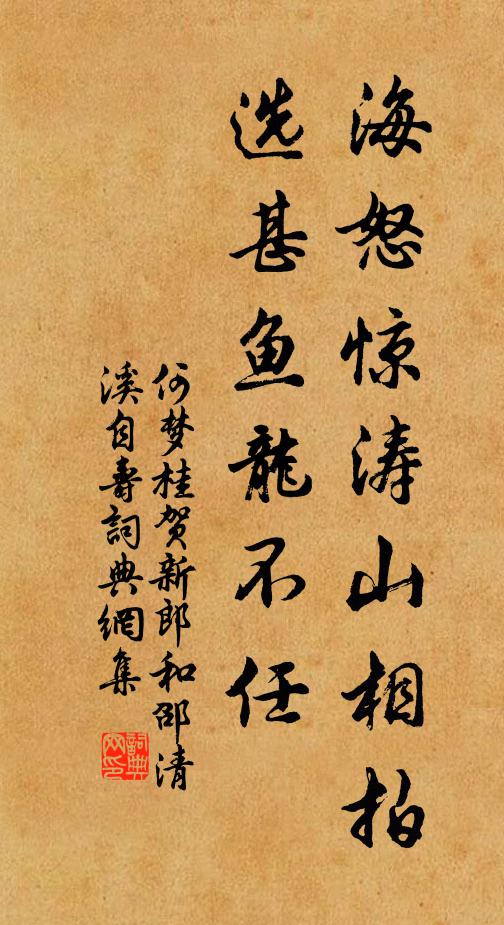 海怒惊涛山相拍
选甚鱼龍不任
何梦桂贺新郎和邵清
溪自壽詞典網集
詞典
网印